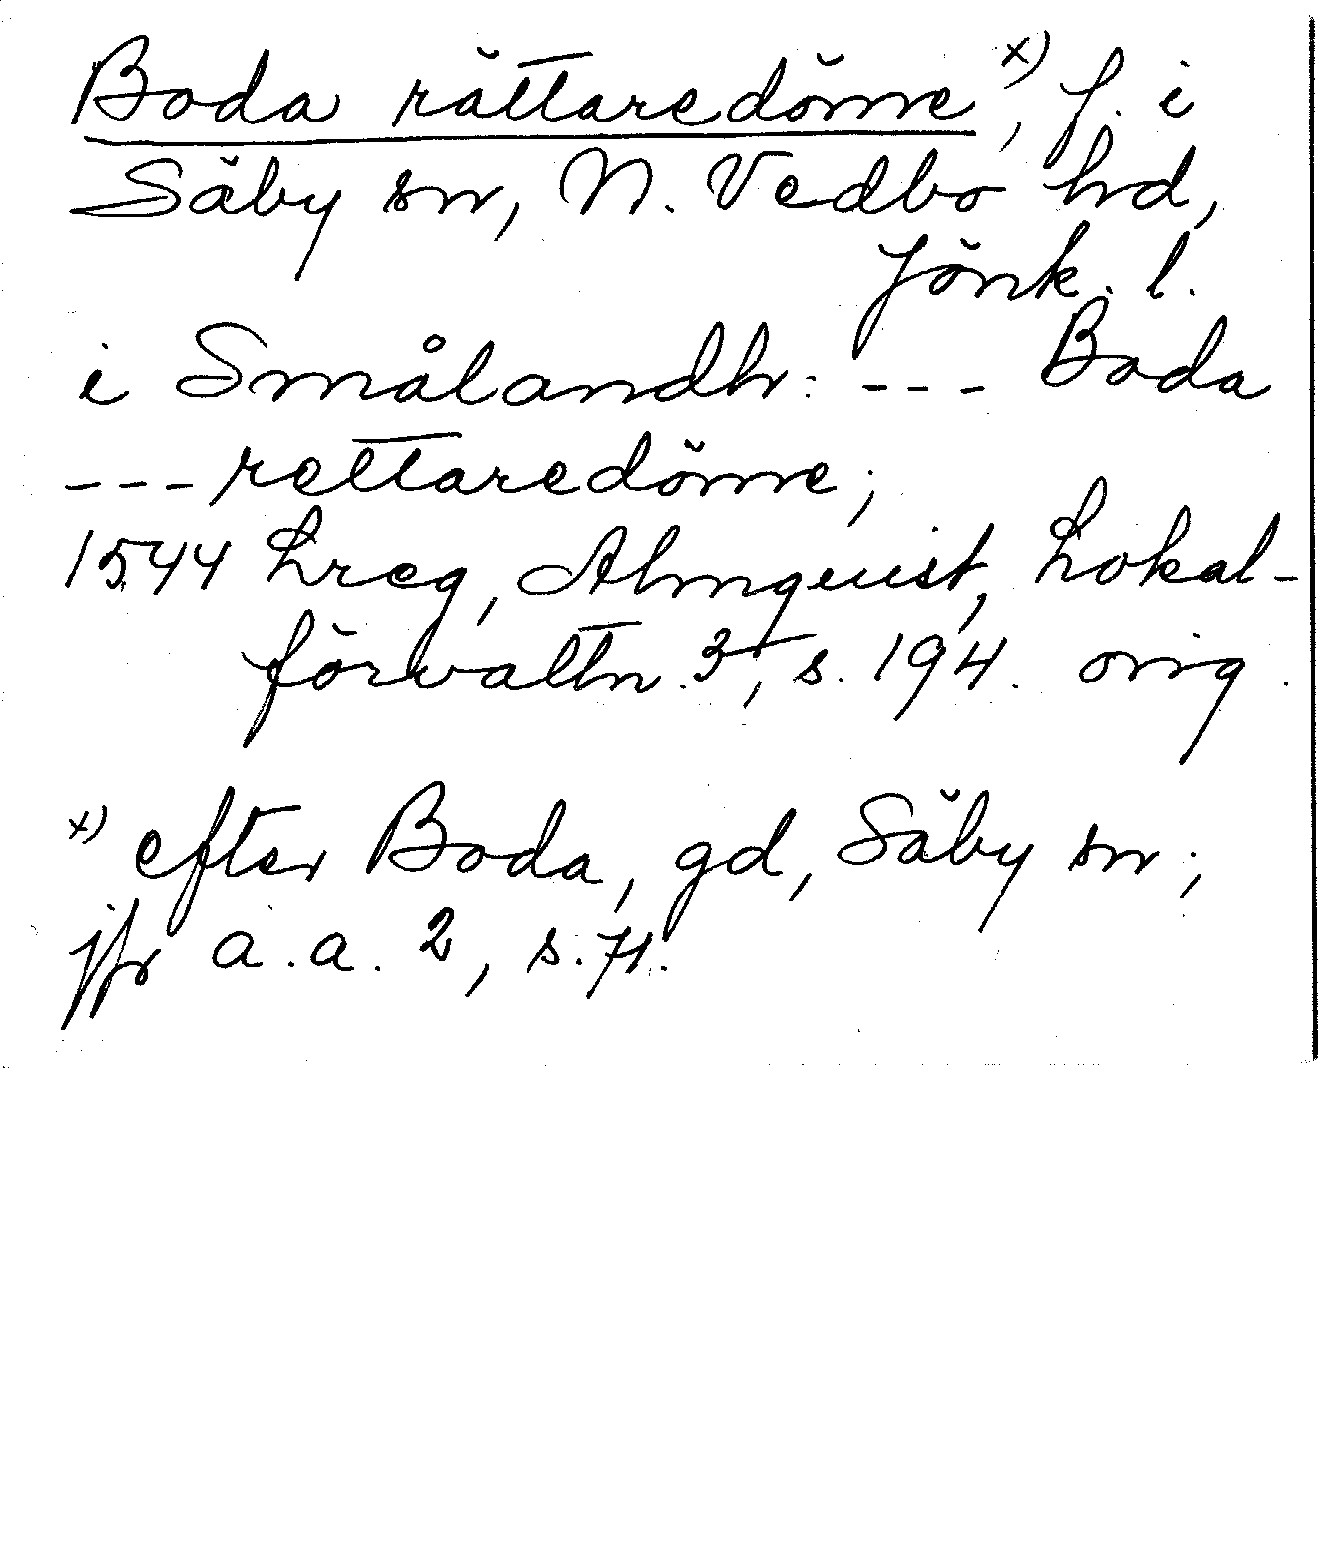 Boda rättaredöme x), f. i
Säby sn, N. Vedbo hd,
Jönk. l.
i Smålandh: --- Boda
--- rettaredöme;
1544 Lreg, Almquist, Lokal-
förvaltn. 3, s. 194. orig.
x) efter Boda, gd, Säby sn;
jfr a.a. 2, s. 71.